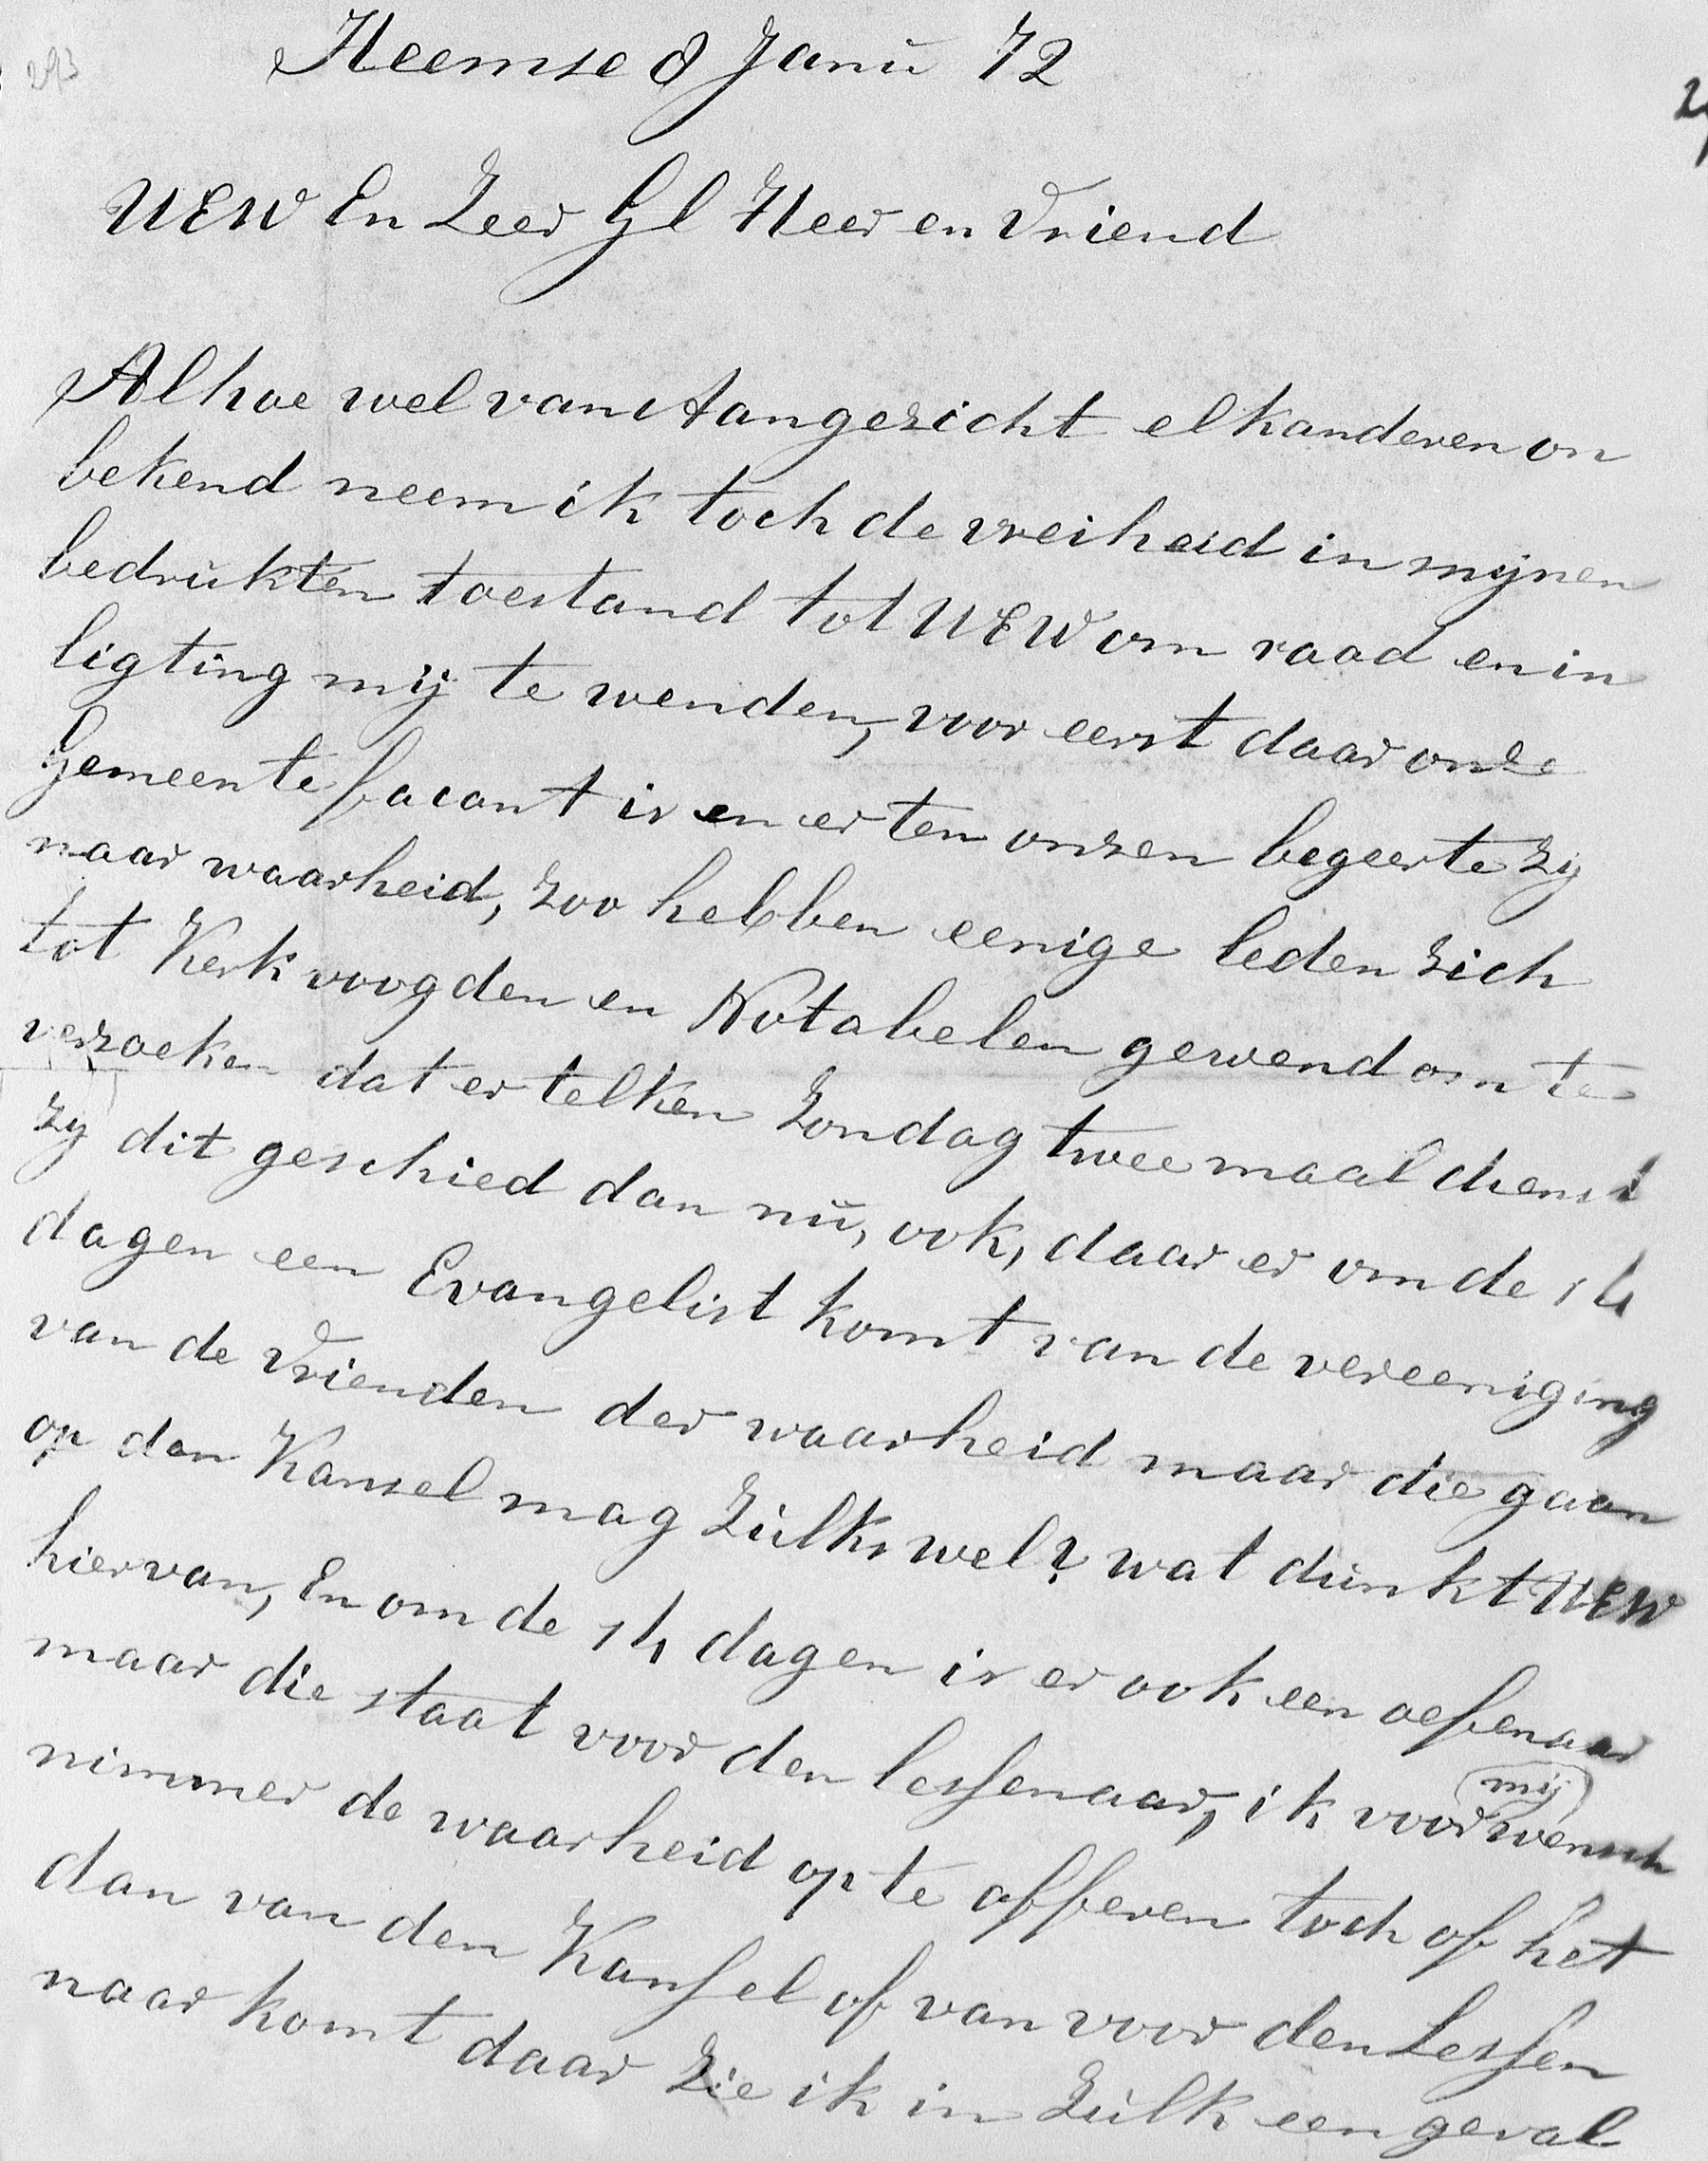 293
Heemse 8 Janu 72
UEW En Zeer Gl Heer en Vriend
Alhoe wel van Aangezicht elkanderen on
bekend neem ik toch de vreiheid in mijnen
bedrukten toestand tot UEW om raad en in
ligting mij te wenden, voor eerst daar onze
Gemeente facant is en er ten onzen begeerte zij
naar waarheid, zoo hebben eenige leden zich
tot Kerkvoogden en Notabelen gewend om te
verzoeken dat er telken Zondag twee maal dienst
zij dit geschied dan nu, ook, daar er om de 14
dagen een Evangelist komt van de vereeniging
van de Vrienden der waarheid maar die gaan
op den Kansel mag Zulks wel? wat dunkt UEW
hiervan, En om de 14 dagen is er ook een oefenaar
maar die staat voor den lessenaar, ik voor mij wensch
nimmer de waarheid op te offeren toch of het
dan van den Kansel of van voor den Lessen
naar komt daar Zie ik in Zulk een geval